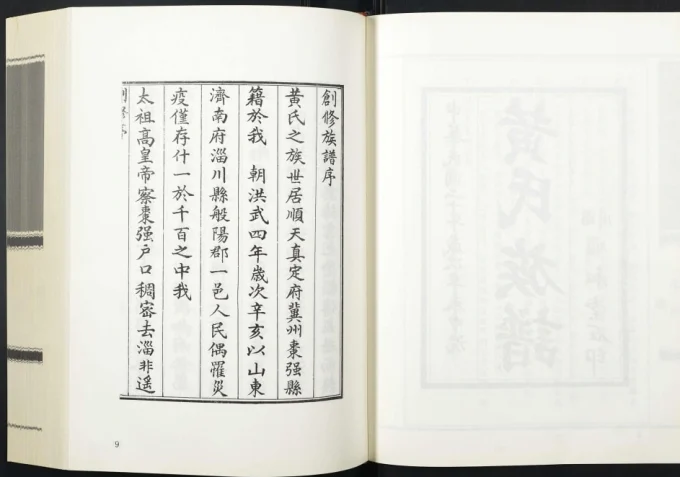 創修族譜序
黃氏之族世居順天真定府冀州棗强縣
籍於我　朝洪武四年歲次辛亥以山東
濟南府淄川縣般陽郡一邑人民偶罹災
疫僅存什一於千百之中我
太祖高皇帝察棗强戶口稠密去淄非遥
創修序
9
黃氏族譜